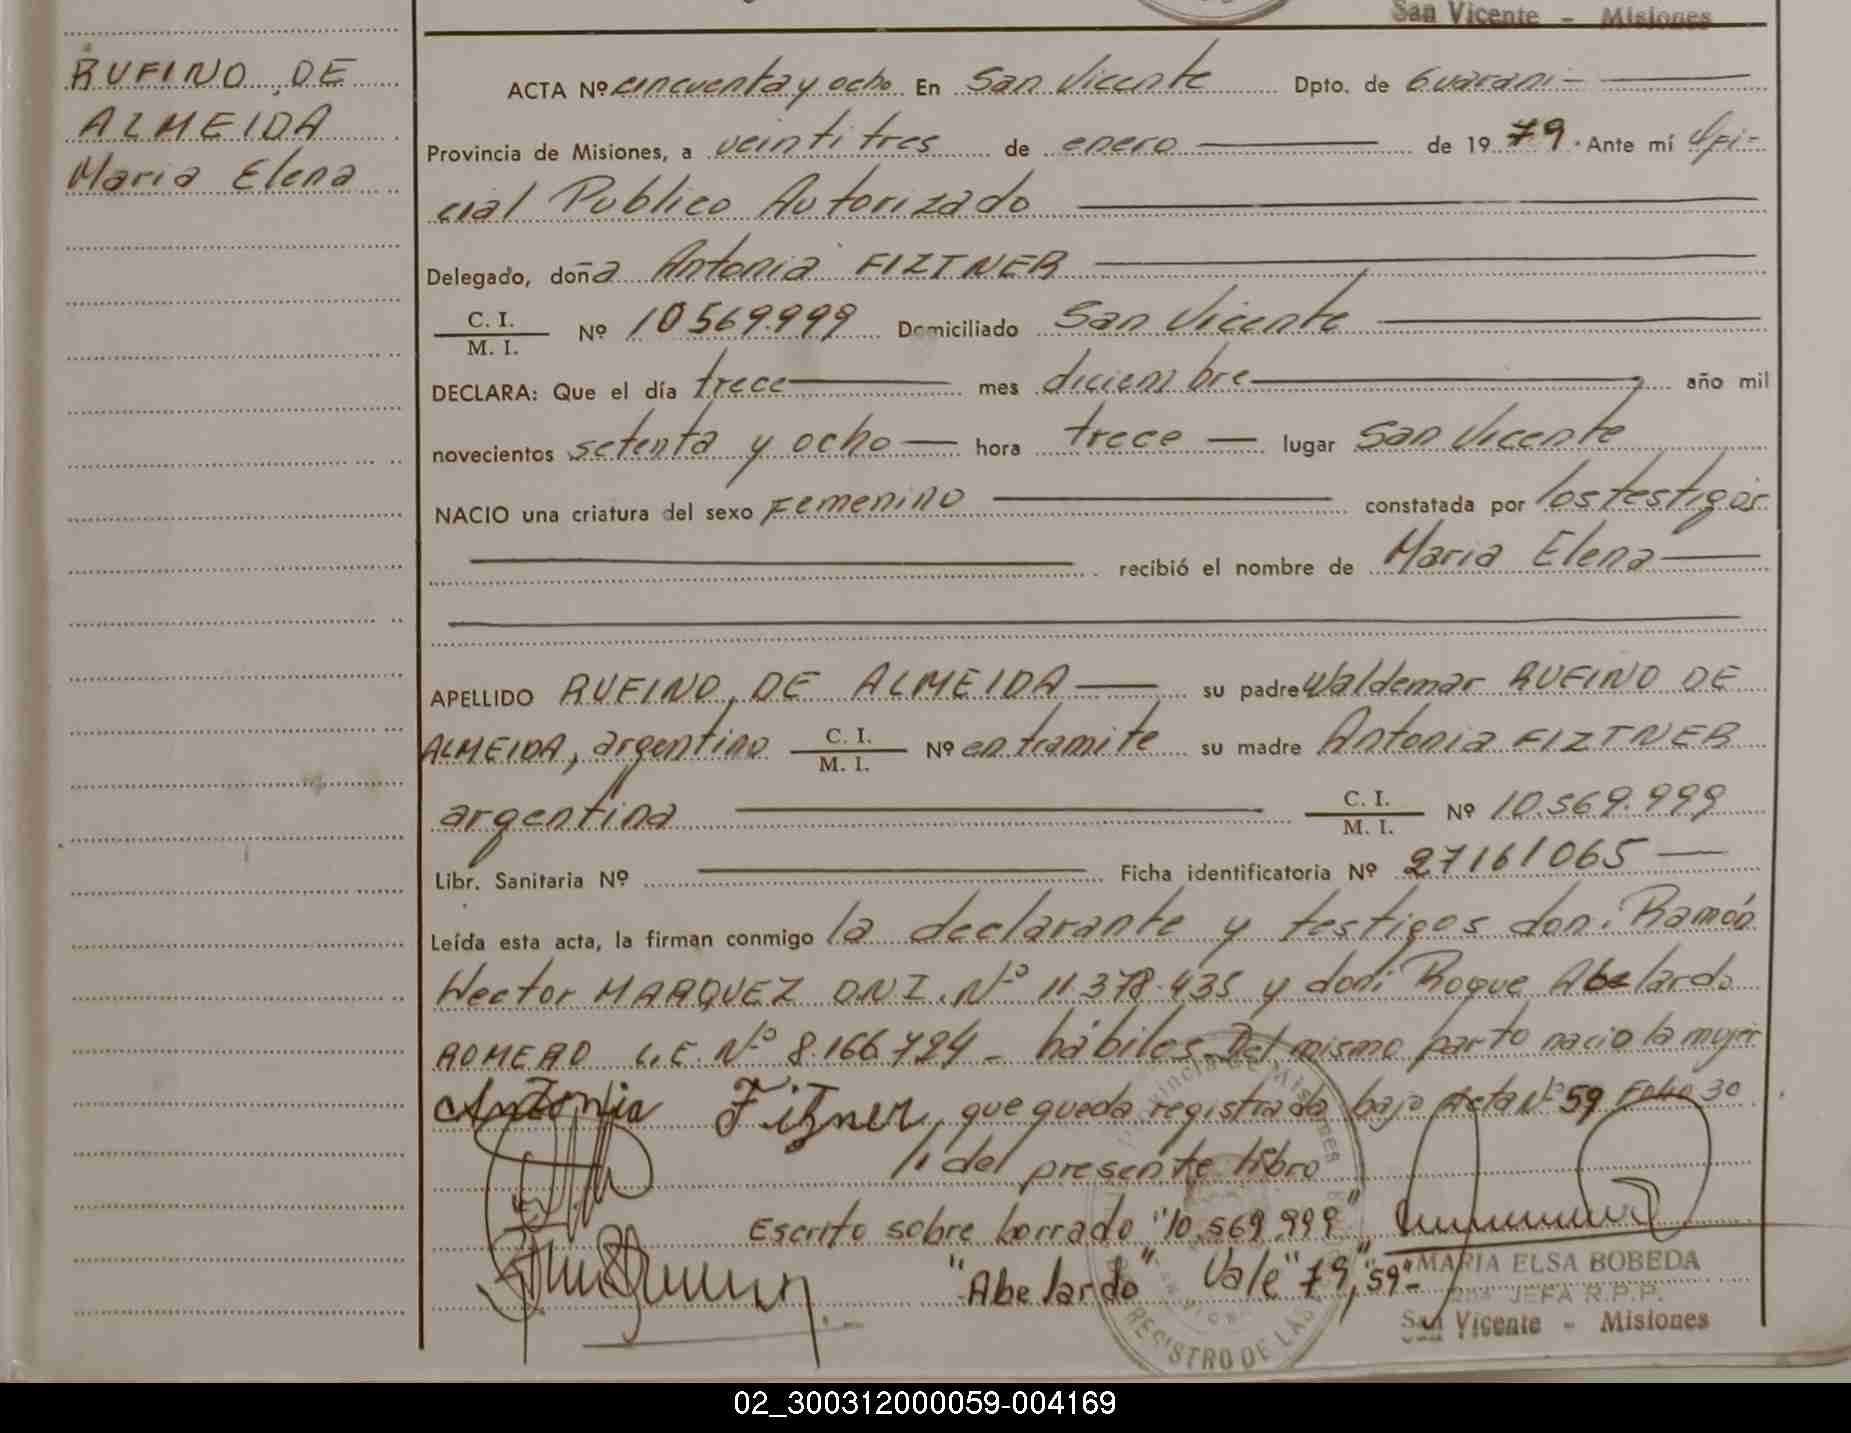 San Vicente - Misiones
RUFINO DE
ALMEIDA
Maria Elena
ACTA Nº cincuenta y ocho En San Vicente Dpto. de Guarani
Provincia de Misiones, a veintitres de enero de 1979. Ante mí Ofi-
cial Publico Autorizado
Delegado, doña Antonia FIZTNER
C. I.
M. I. Nº 10569.999 Domiciliado San Vicente
DECLARA: Que el día trece mes diciembre año mil
novecientos setenta y ocho hora trece lugar San Vicente
NACIO una criatura del sexo Femenino constatada por los testigos
recibió el nombre de Maria Elena
APELLIDO RUFINO DE ALMEIDA su padre Waldemar RUFINO DE
ALMEIDA, argentino C. I. M. I. Nº en tramite su madre Antonia FIZTNER
argentina C. I. M. I. Nº 10.569.999
Libr. Sanitaria Nº Ficha identificatoria Nº 27161065
Leída esta acta, la firman conmigo la declarante y testigos don: Ramón
Hector MARQUEZ D.N.I. Nº 11.378.435 y don: Roque Abelardo
ROMERO L.E. Nº 8.166.724 - hábiles. Del mismo parto nacio la mujer
Antonia Fitzner, que queda registrada bajo Acta Nº 59 Folio 30
// del presente libro
Escrito sobre borrado "10.569.999",
"Abelardo" Vale "79", "59"-
MARIA ELSA BOBEDA
JEFA R.P.P.
San Vicente - Misiones
REGISTRO DE LAS
02_300312000059-004169